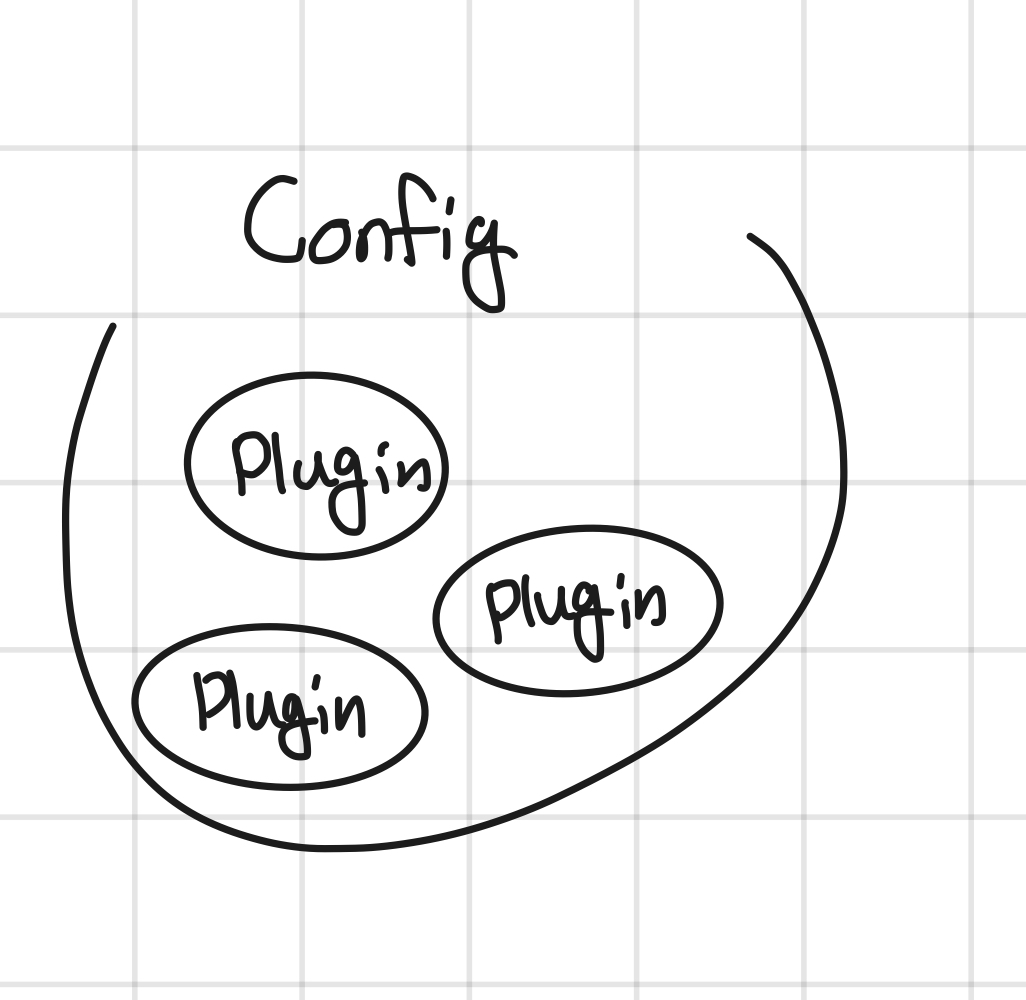 Config
Plugin
Plugin
Plugin